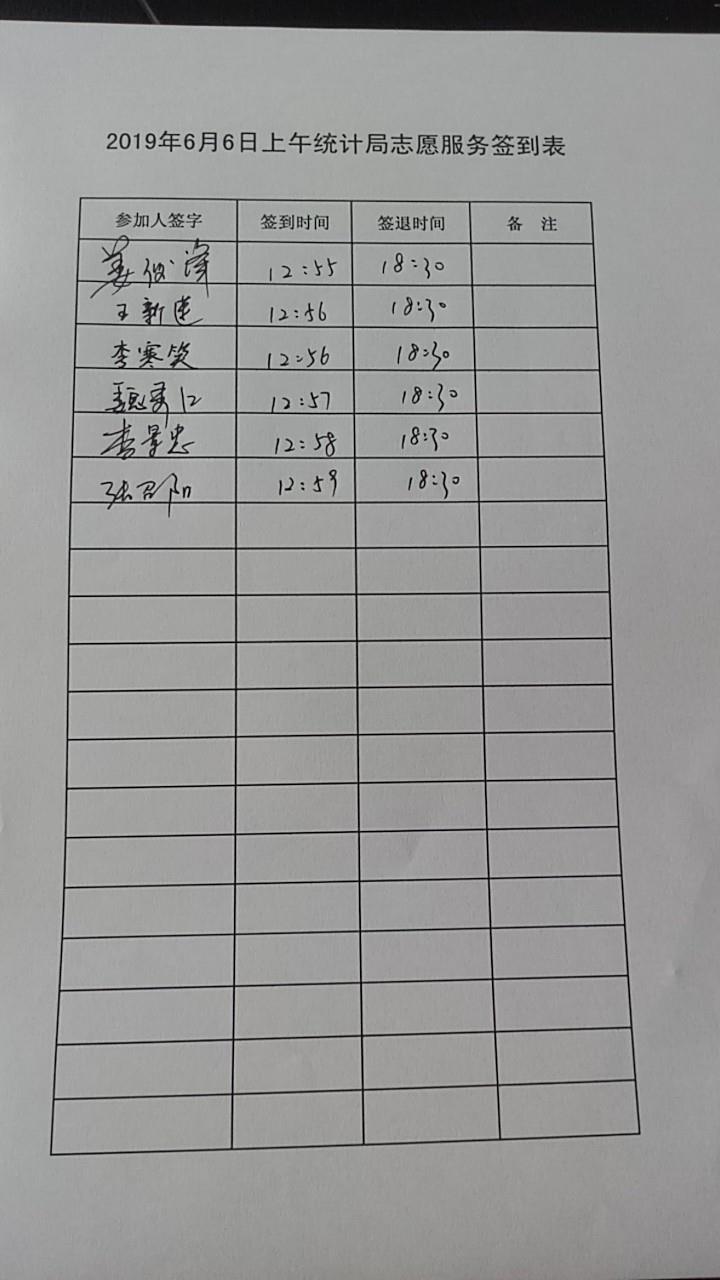 2019年6月6日上午统计局志愿服务签到表
参加人签字 签到时间 签退时间 备 注
姜俊泽 12:55 18:30
王新莲 12:56 18:30
李寒笑 12:56 18:30
12:57 18:30
李景忠 12:58 18:30
张邵阳 12:59 18:30